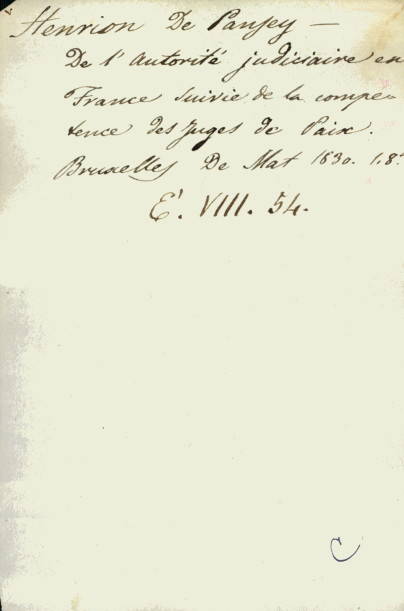 Henrion De Pansey —
De l'Autorité judiciaire en
France suivie de la compe-
tence des Juges de Paix.
Bruxelles De Mat 1830. 1.8°
E'. VIII. 54.
C